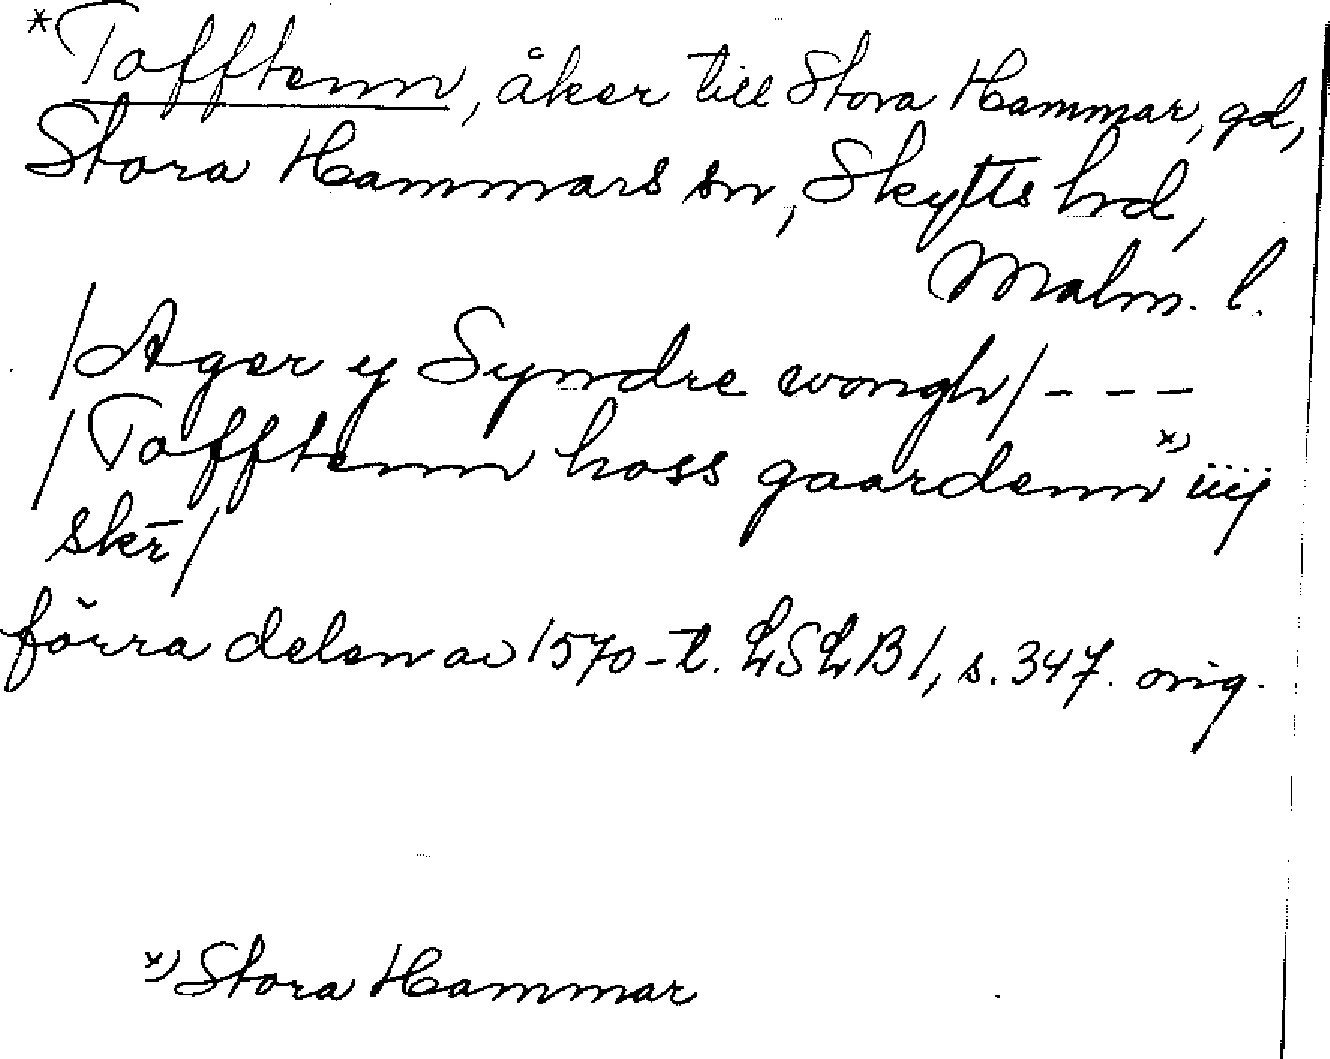 *Tofftenn, åker till Stora Hammar, gd,
Stora Hammars sn, Skytts hd,
Malm. l.
/Ager y Syndre wongh/ - - -
/Tofftenn hoss gaardenn x) iiij
skr̄/
förra delen av 1570-t. LSLB1, s. 347. orig.
x) Stora Hammar